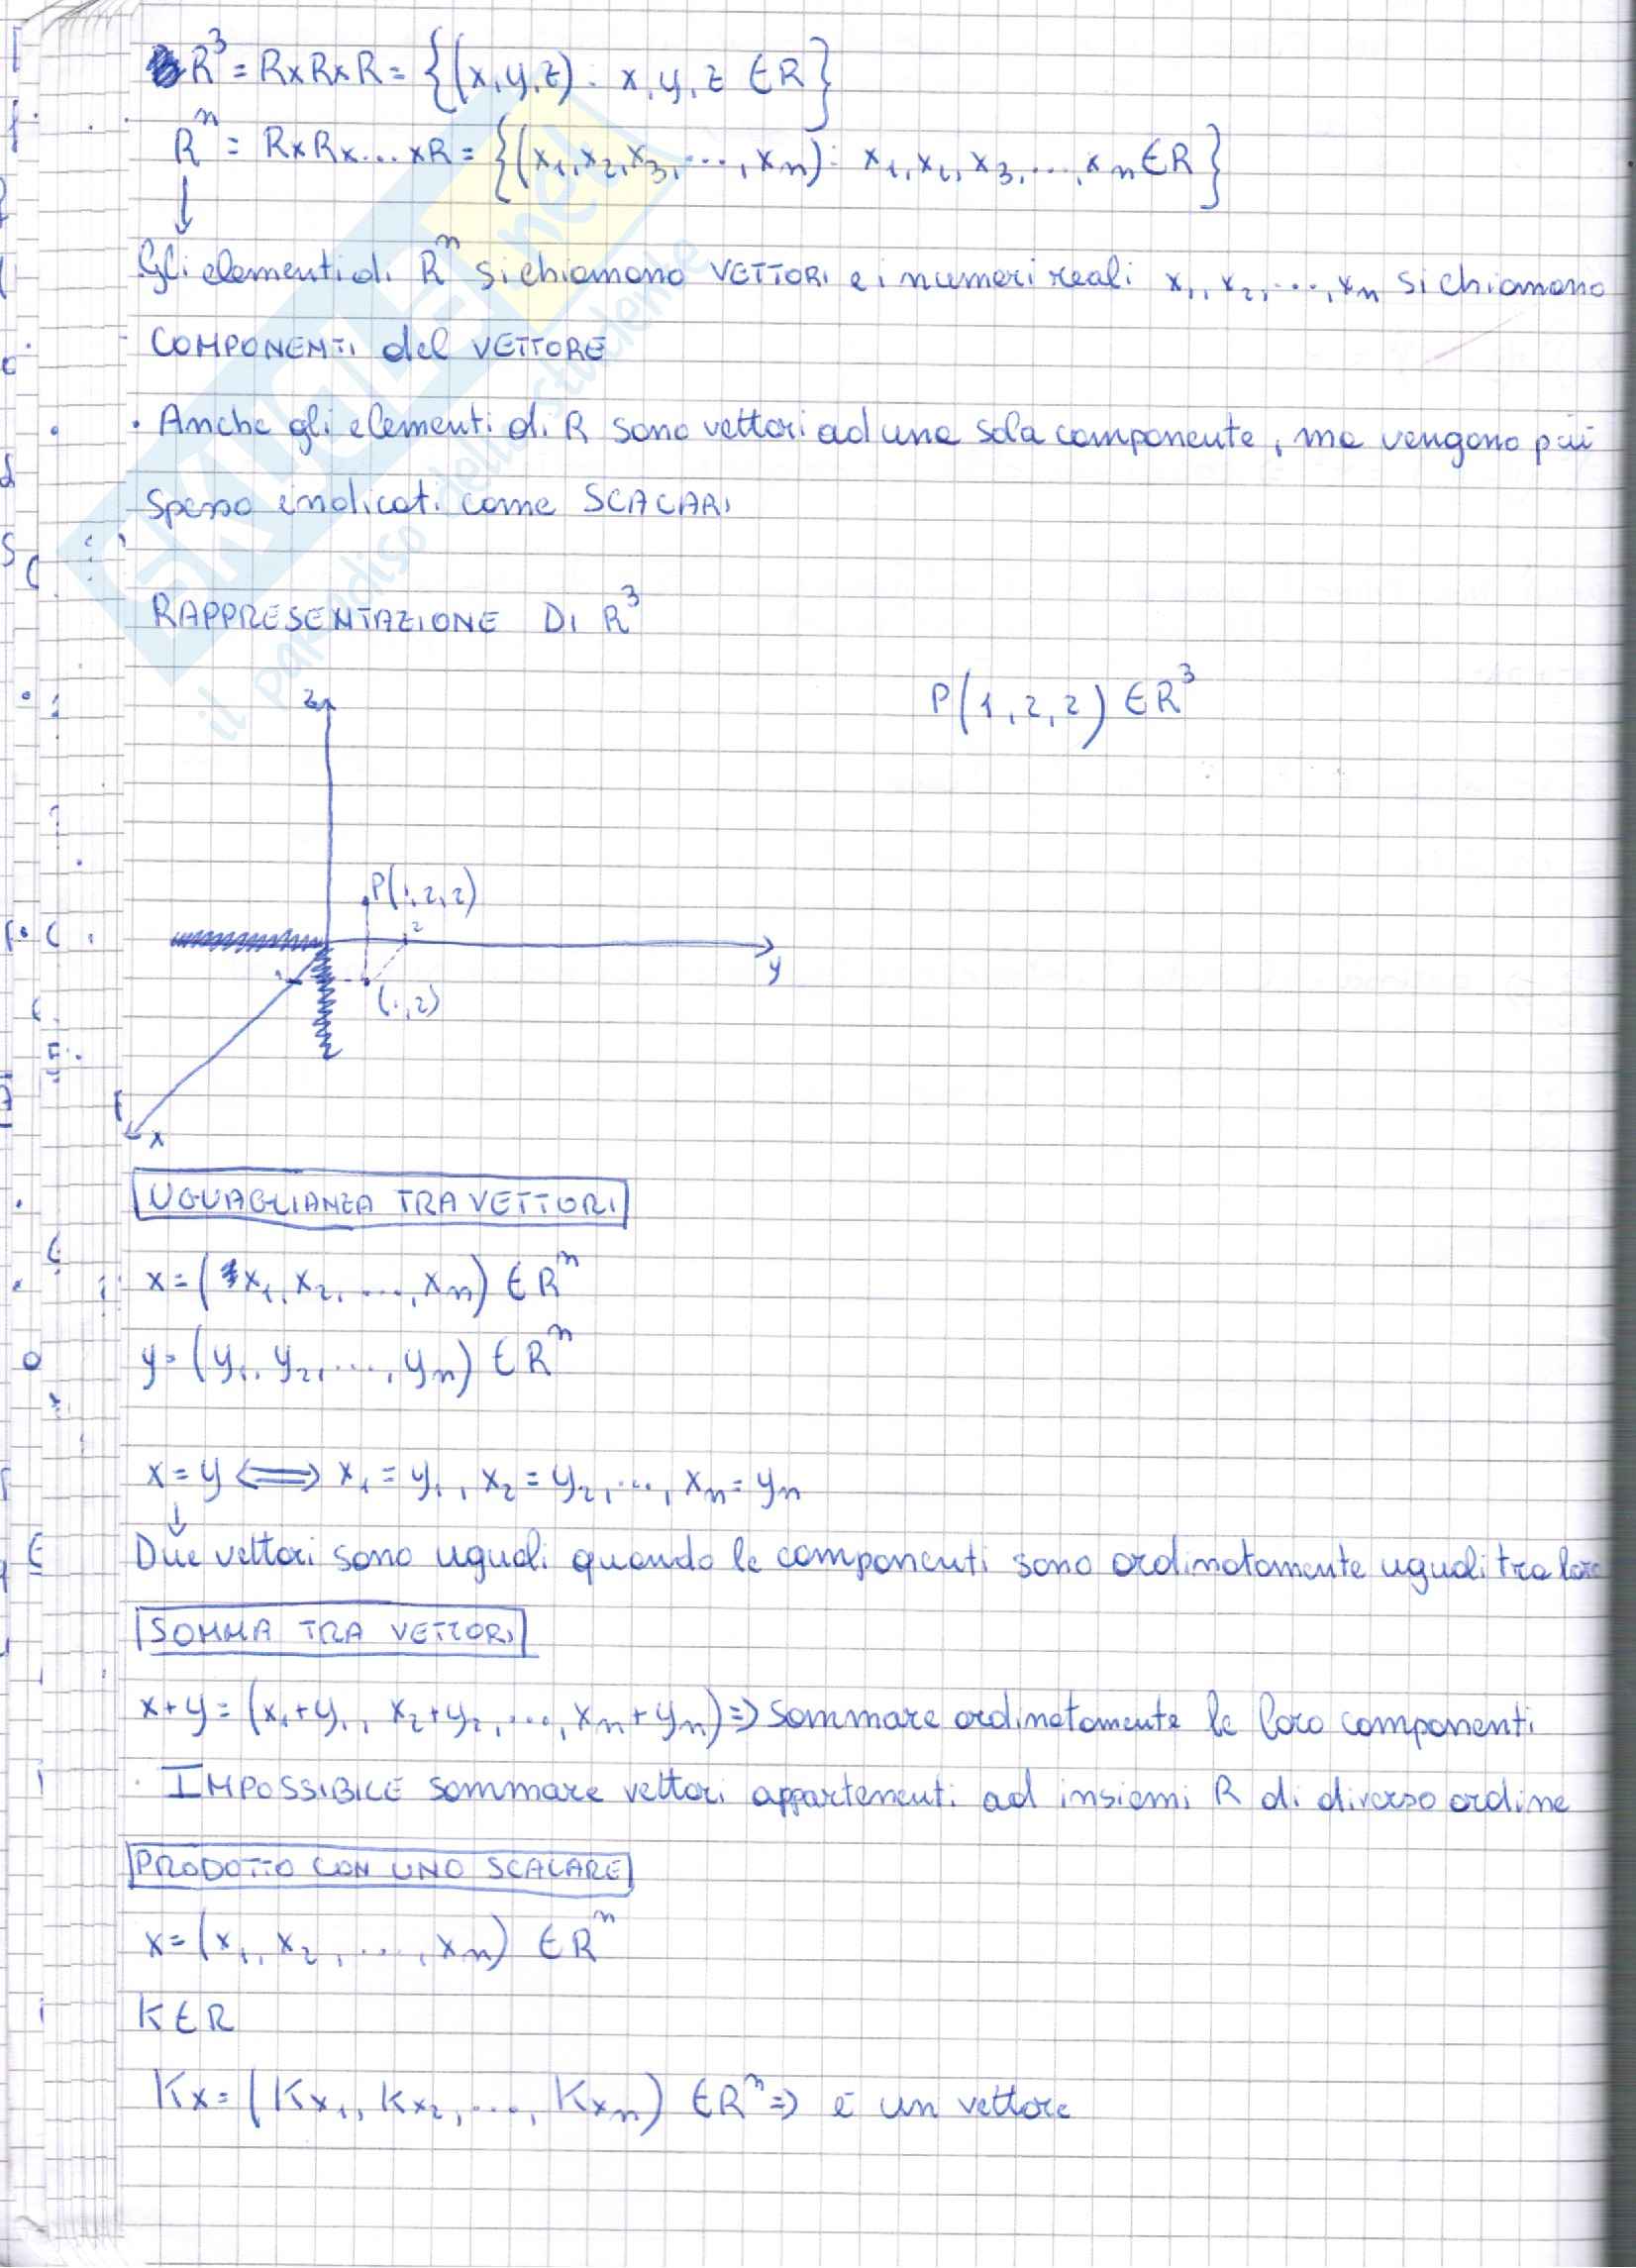 R³ = R×R×R = {(x,y,z) : x,y,z ∈ R}
Rⁿ = R×R×...×R = {(x₁,x₂,x₃,...,xₙ) : x₁,x₂,x₃,...,xₙ ∈ R}
↓
Gli elementi di Rⁿ si chiamano VETTORI e i numeri reali x₁,x₂,...,xₙ si chiamano
COMPONENTI del VETTORE
• Anche gli elementi di R sono vettori ad una sola componente, ma vengono più
spesso indicati come SCALARI
RAPPRESENTAZIONE DI R³
P(1,2,2) ∈ R³
z
P(1,2,2)
2
y
1
(1,2)
x
UGUAGLIANZA TRA VETTORI
x = (x₁,x₂,...,xₙ) ∈ Rⁿ
y = (y₁,y₂,...,yₙ) ∈ Rⁿ
x = y ⟺ x₁ = y₁, x₂ = y₂, ..., xₙ = yₙ
↓
Due vettori sono uguali quando le componenti sono ordinatamente uguali tra loro
SOMMA TRA VETTORI
x+y = (x₁+y₁, x₂+y₂, ..., xₙ+yₙ) ⇒ sommare ordinatamente le loro componenti
• IMPOSSIBILE sommare vettori appartenenti ad insiemi R di diverso ordine
PRODOTTO CON UNO SCALARE
x = (x₁,x₂,...,xₙ) ∈ Rⁿ
K ∈ R
Kx = (Kx₁, Kx₂, ..., Kxₙ) ∈ Rⁿ ⇒ è un vettore
SKUOLA.net
il paradiso dello studente